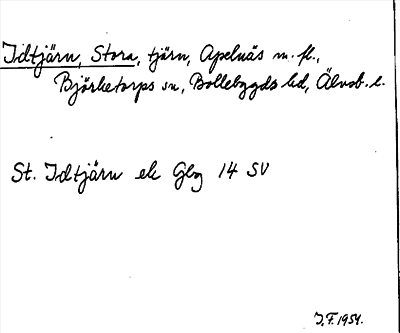 Idtjärn, Stora, tjärn, Apelnäs m. fl.,
Björketorps sn, Bollebygds hd, Älvsb. l.
St. Idtjärn ek Gbg 14 SV
J.F. 1954.